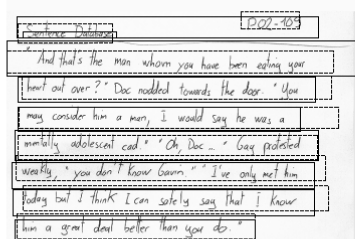 Sentence Database P02-109
"And that's the man whom you have been eating your
heart out over?" Doc nodded towards the door. "You
may consider him a man, I would say he was a
mentally adolescent cad." "Oh, Doc -" Gay protested
weakly, "you don't know Gavin." "I've only met him
today but I think I can safely say that I know
him a great deal better than you do."